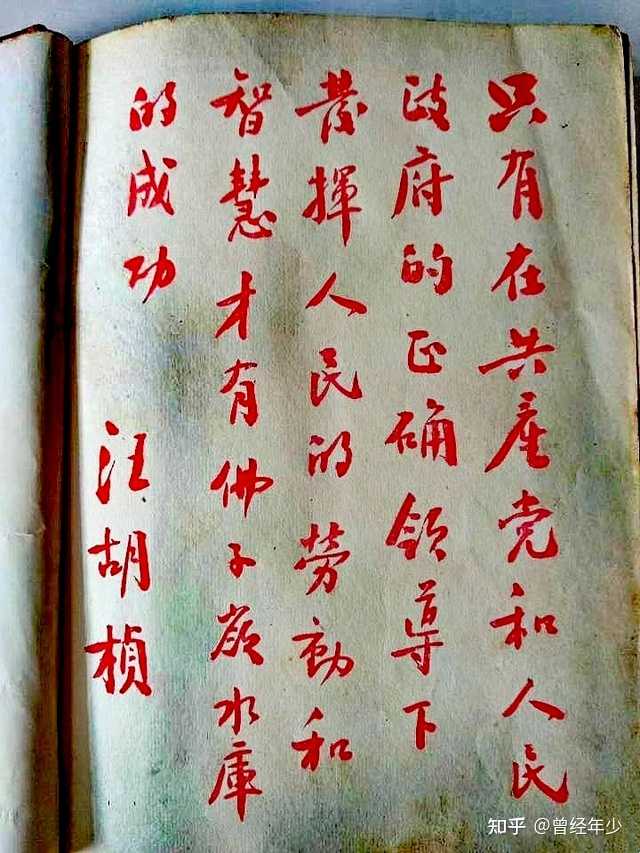 只有在共產党和人民
政府的正确領导下
發揮人民的劳動和
智慧才有佛子嶺水庫
的成功
汪胡楨
知乎 @曾经年少